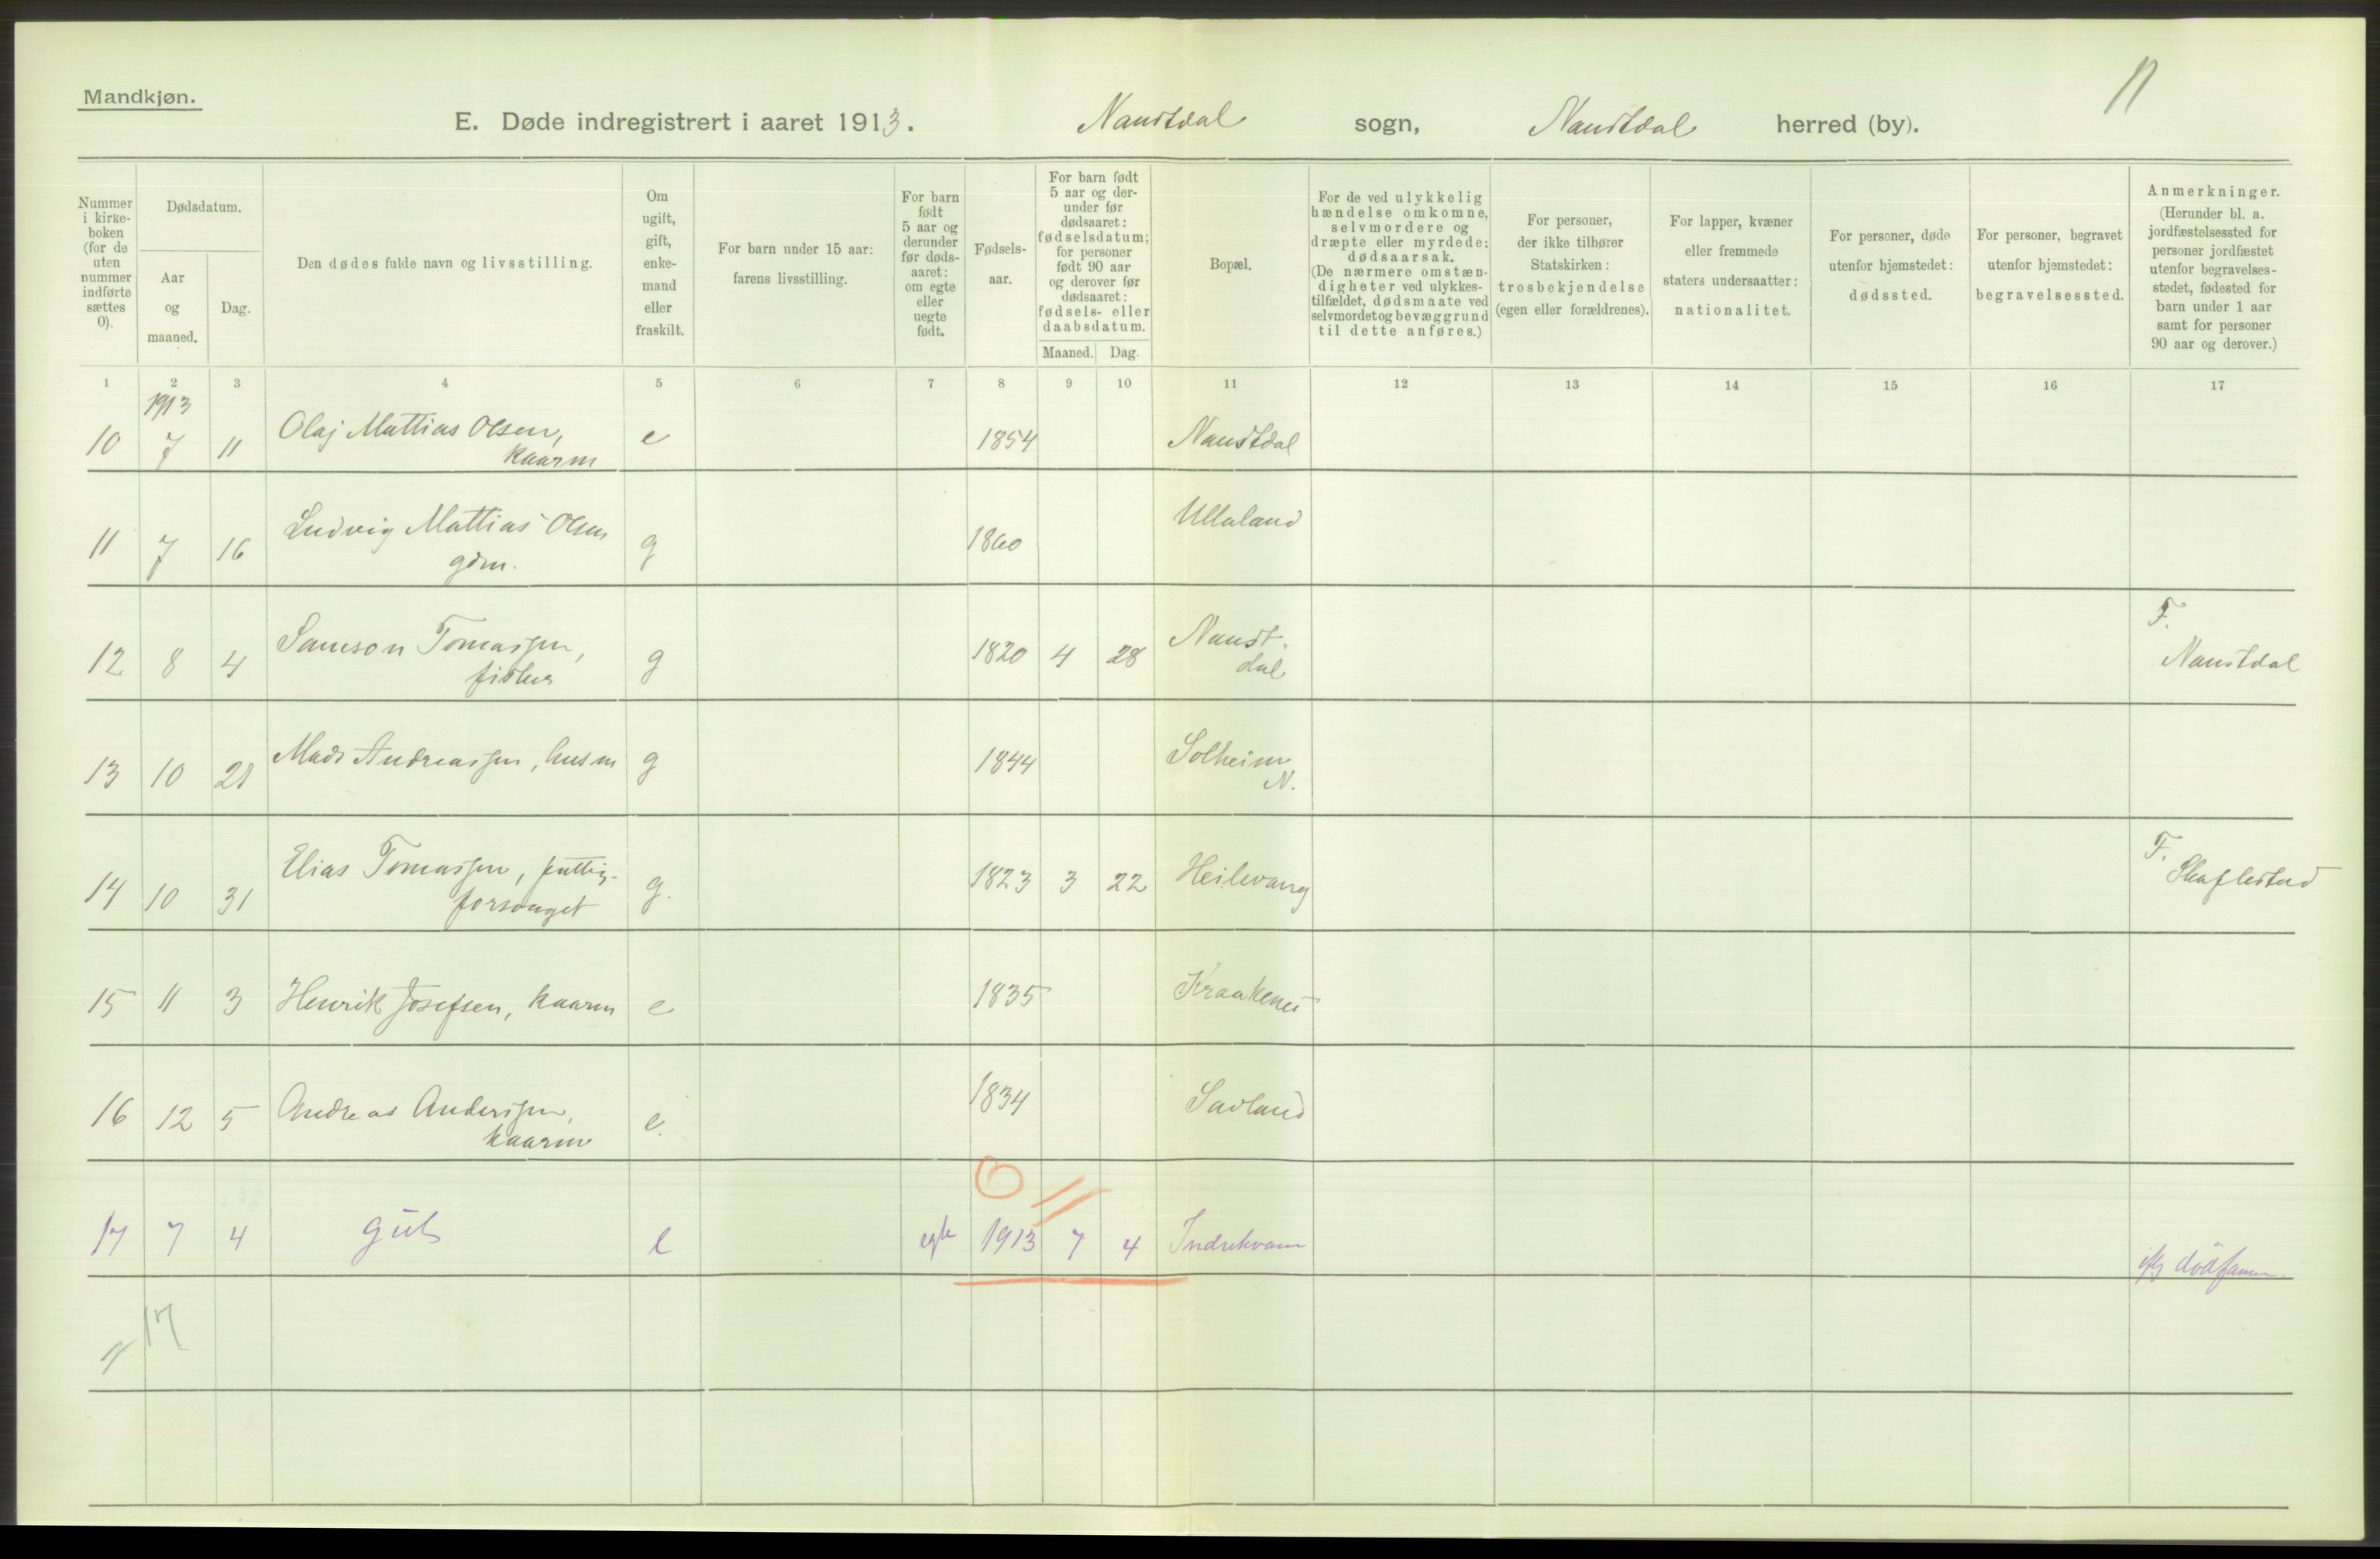 Mandkjøn.
E. Døde indregistrert i aaret 1913. Naustdal sogn, Naustdal herred (by).
Nummer i kirke-boken (for de uten nummer indførte sættes 0).
Dødsdatum.
Aar og maaned.
Dag.
Den dødes fulde navn og livsstilling.
Om ugift, gift, enke-mand eller fraskilt.
For barn under 15 aar: farens livsstilling.
For barn født 5 aar og derunder før døds-aaret: om egte eller uegte født.
Fødsels-aar.
For barn født 5 aar og der-under før dødsaaret: fødselsdatum; for personer født 90 aar og derover før dødsaaret: fødsels- eller daabsdatum.
Maaned. Dag.
Bopæl.
For de ved ulykkelig hændelse omkomne, selvmordere og dræpte eller myrdede: dødsaarsak. (De nærmere omstæn-digheter ved ulykkes-tilfældet, dødsmaate ved selvmordet og bevæggrund til dette anføres.)
For personer, der ikke tilhører Statskirken: trosbekjendelse (egen eller forældrenes).
For lapper, kvæner eller fremmede staters undersaatter: nationalitet.
For personer, døde utenfor hjemstedet: dødssted.
For personer, begravet utenfor hjemstedet: begravelsessted.
Anmerkninger. (Herunder bl. a. jordfæstelsessted for personer jordfæstet utenfor begravelses-stedet, fødested for barn under 1 aar samt for personer 90 aar og derover.)
1 2 3 4 5 6 7 8 9 10 11 12 13 14 15 16 17
1913
10 7 11 Olaj Mattias Olsen, e 1854 Naustdal
kaarm
11 7 16 Ludvig Mattias Olsen g 1860 Ullaland
gdm.
12 8 4 Samson Tomassen, g 1820 4 28 Naust-dal F. Naustdal
fisker
13 10 21 Mads Andreassen, husm g 1844 Solheim N.
14 10 31 Elias Tomassen, fattig- g. 1823 3 22 Heilevang F. Skaflestad
forsørget
15 11 3 Henrik Josefsen, kaarm e 1835 Kraakenes
16 12 5 Andreas Anderssen, e. 1834 Savland
kaarm
17 7 4 gut e egte 1913 7 4 Indrekvam
17